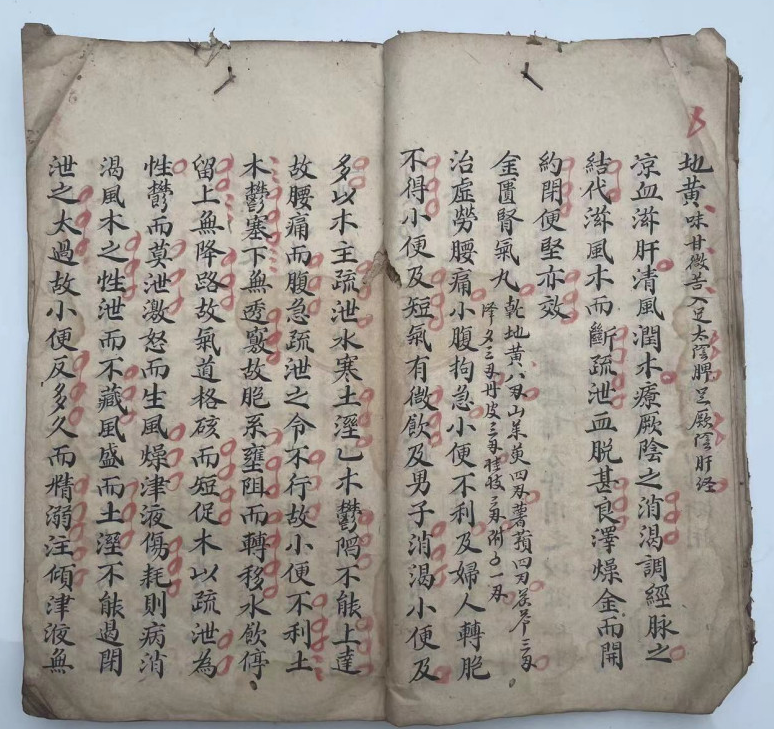 地黃味甘微苦入足太陰脾足厥陰肝经
凉血滋肝清風潤木療厥陰之消渴調經脉之
結代滋風木而斷疏泄血脫甚良澤燥金而開
約閉便堅亦效
金匱腎氣丸乾地黃八刄山茱萸四刄薯蕷四刄茯苓三刄
泽夕三刄丹皮三刄桂枝三刄附子一刄
治虛勞腰痛小腹拘急小便不利及婦人轉胞
不得小便及短氣有微飲及男子消渴小便及
多以木主疏泄水寒土溼乙木鬱陷不能上達
故腰痛而腹急疏泄之令不行故小便不利土
木鬱塞下無透竅故胞系壅阻而轉移水飲停
留上無降路故氣道格硋而短促木以疏泄為
性鬱而莫泄激怒而生風燥津液傷耗則病消
渴風木之性泄而不藏風盛而土溼不能遏閉
泄之太過故小便反多久而精溺注傾津液無